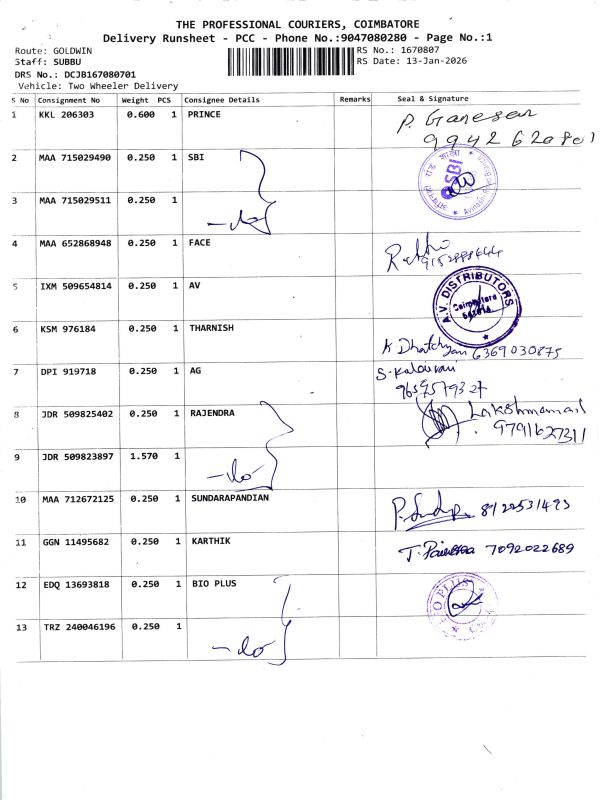 THE PROFESSIONAL COURIERS, COIMBATORE
Delivery Runsheet - PCC - Phone No.:9047080280 - Page No.:1
Route: GOLDWIN
RS No.: 1670807
Staff: SUBBU
RS Date: 13-Jan-2026
DRS No.: DCJB167080701
Vehicle: Two Wheeler Delivery
S No Consignment No Weight PCS Consignee Details Remarks Seal & Signature
1 KKL 206303 0.600 1 PRINCE P. Ganesan
2 MAA 715029490 0.250 1 SBI SBI
3 MAA 715029511 0.250 1 -do
4 MAA 652868948 0.250 1 FACE
5 IXM 509654814 0.250 1 AV A.V. DISTRIBUTORS
Coimbatore
6 KSM 976184 0.250 1 THARNISH 6369030875
7 DPI 919718 0.250 1 AG
8 JDR 509825402 0.250 1 RAJENDRA
9791627311
9 JDR 509823897 1.570 1 -do
10 MAA 712672125 0.250 1 SUNDARAPANDIAN
11 GGN 11495682 0.250 1 KARTHIK 7092022689
12 EDQ 13693818 0.250 1 BIO PLUS BIO PLUS
13 TRZ 240046196 0.250 1 -do